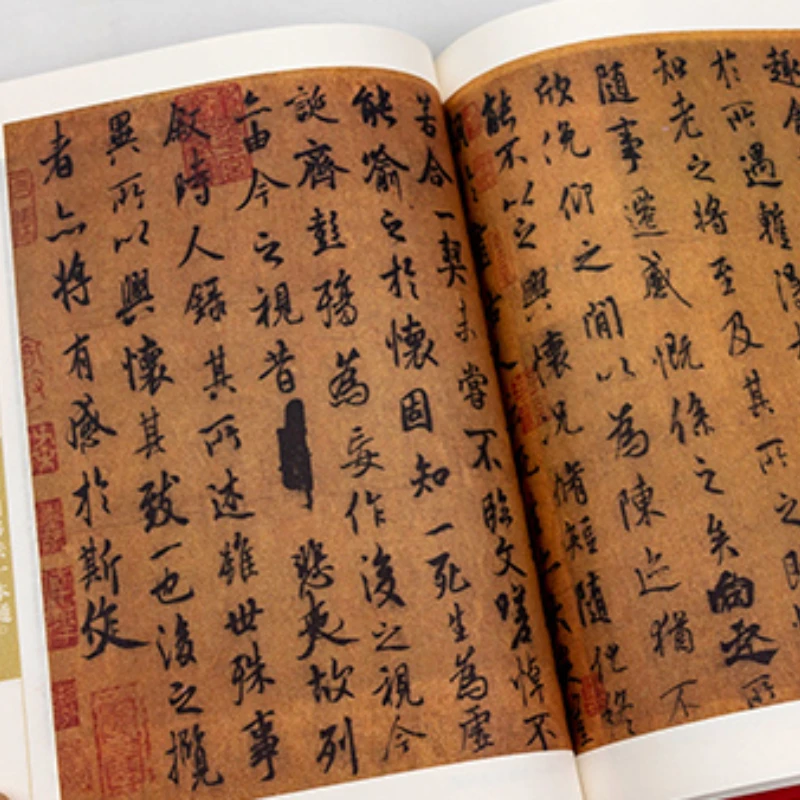 趣舍
於所遇
知老之將至及其所之
隨事遷感慨係之矣向之所
欣俛仰之間以為陳迹猶不
能不以之興懷況脩短隨化終
若合一契未嘗不臨文嗟悼不
能喻之於懷固知一死生為虛
誕齊彭殤為妄作後之視今
亦由今之視昔悲夫故列
叙時人錄其所述雖世殊事
異所以興懷其致一也後之攬
者亦將有感於斯文